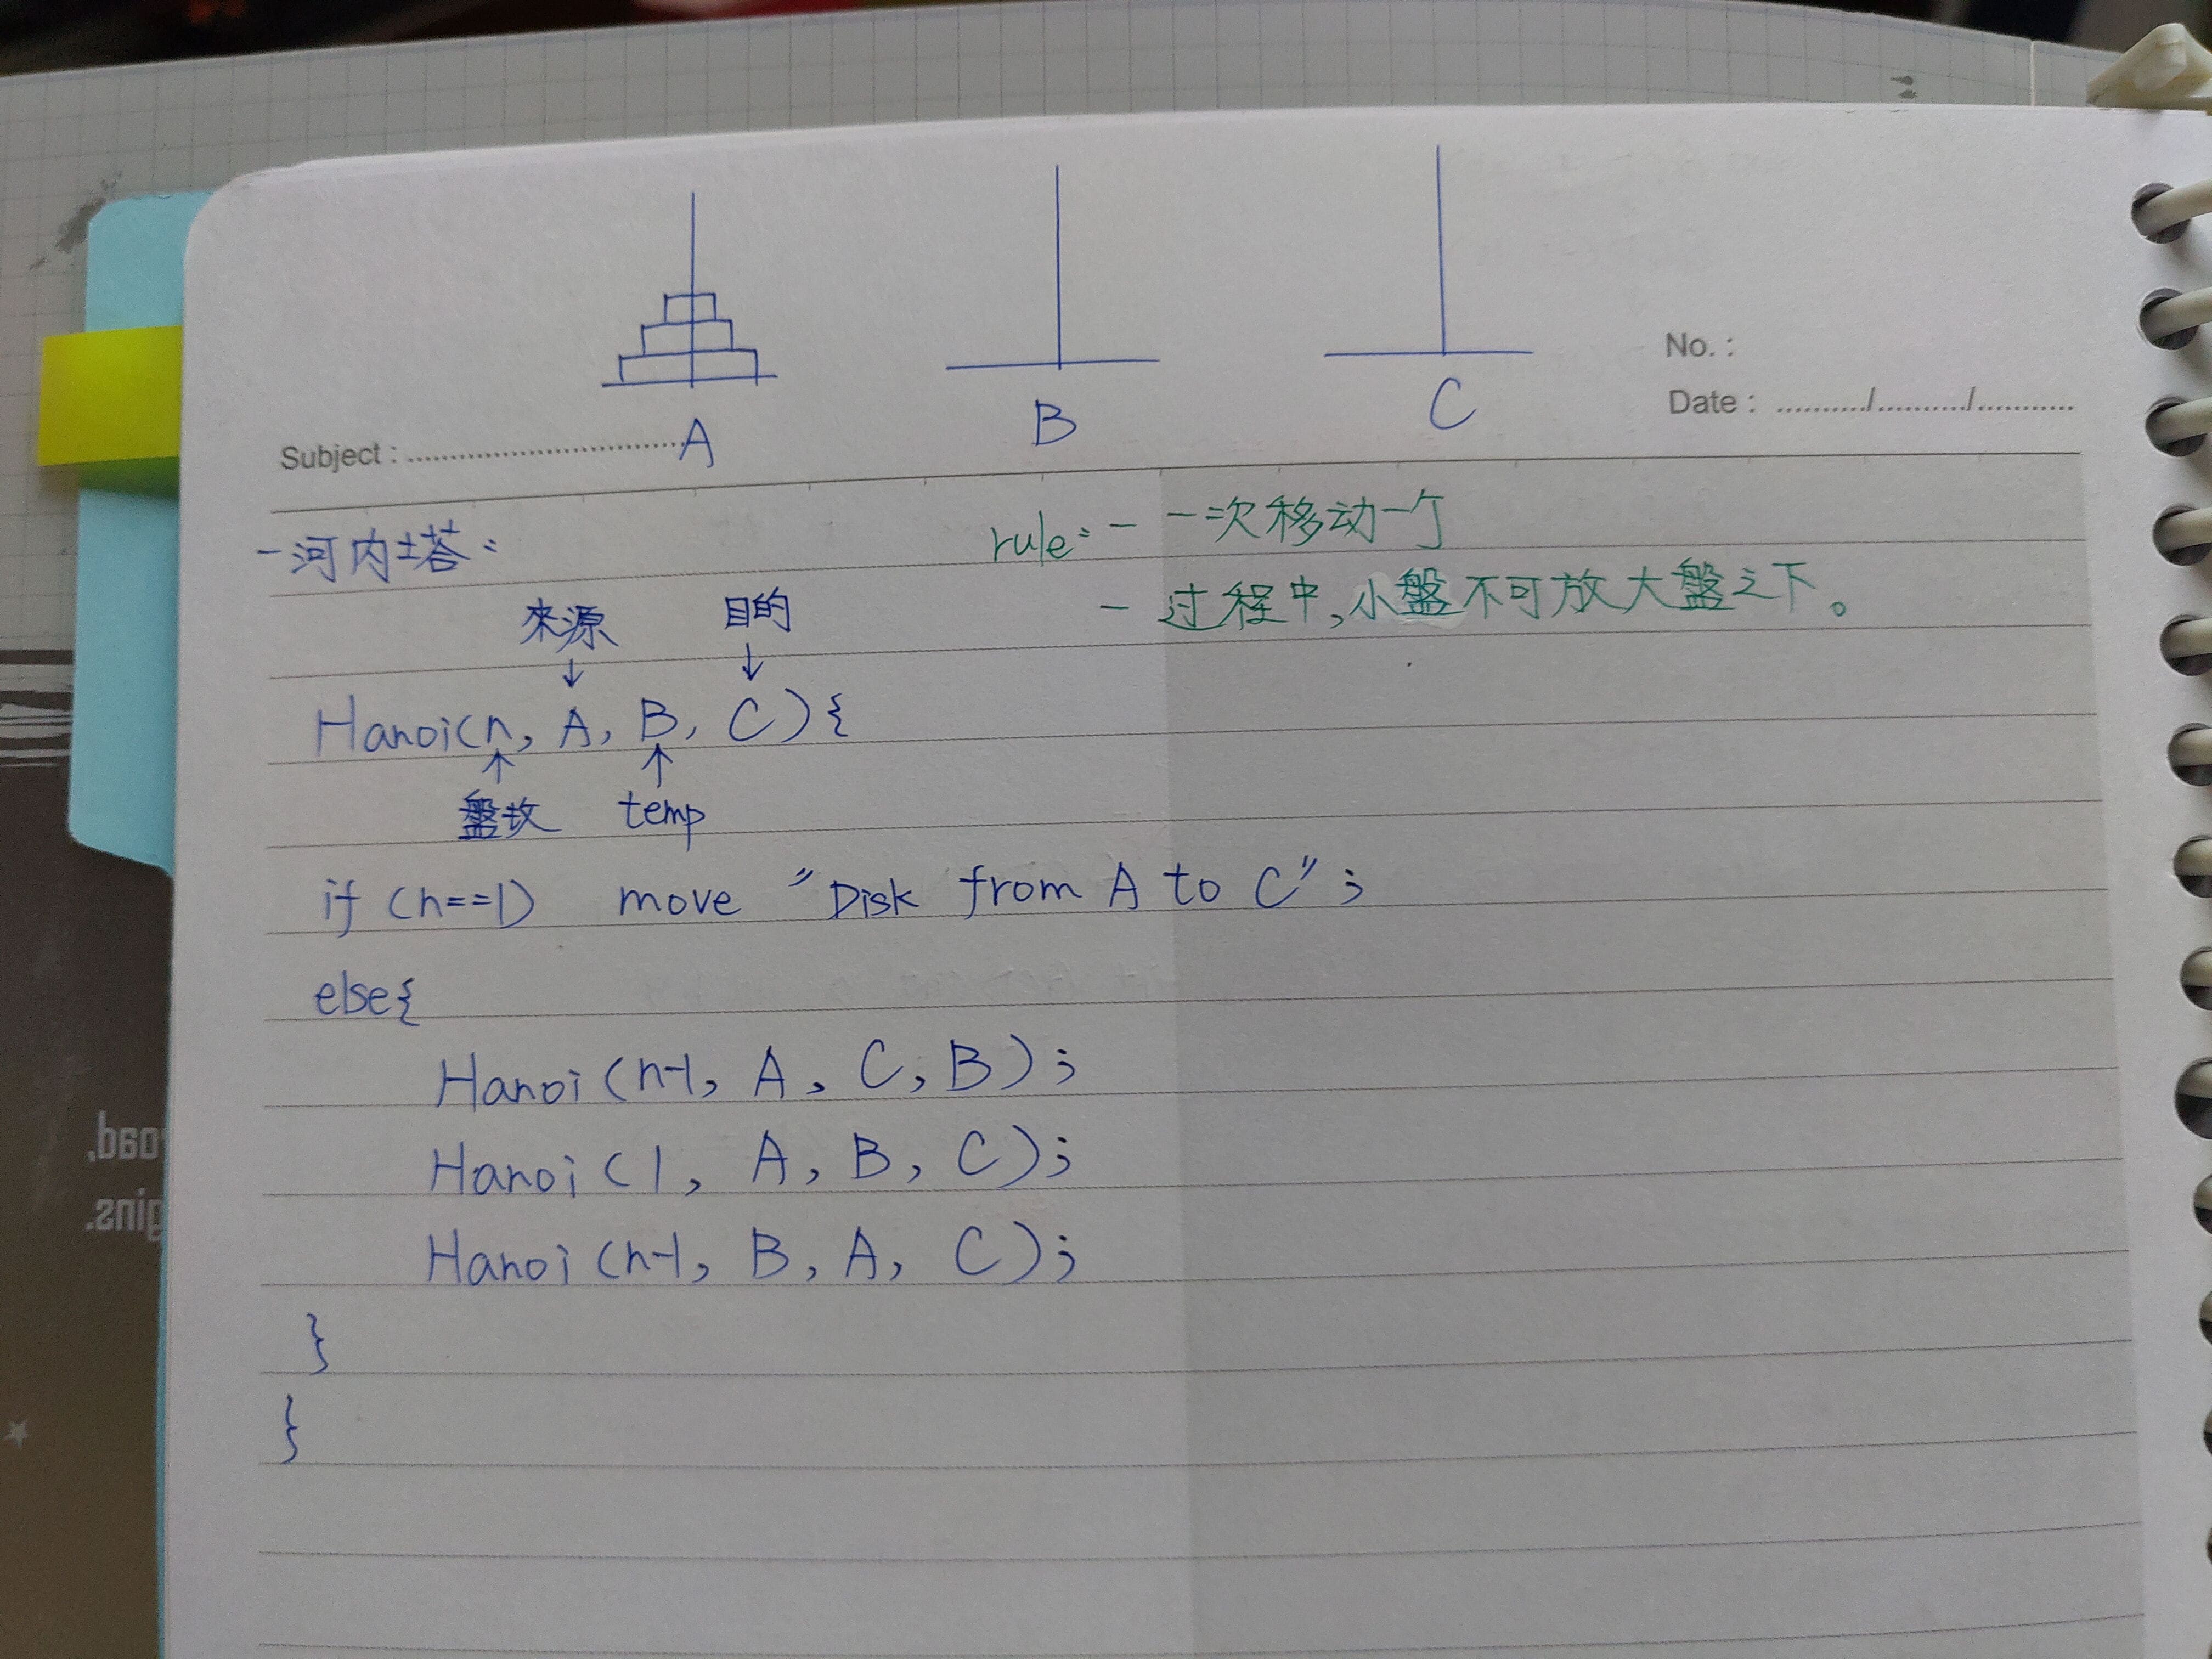 A B C
No. :
Date : ........../........../...........
Subject : ..............................
-河内塔:
rule: - 一次移动一个
- 过程中,小盤不可放大盤之下。
來源 目的
↓ ↓
Hanoi(n, A, B, C){
↑ ↑
temp
if (n==1) move "Disk from A to C";
else{
Hanoi(n-1, A, C, B);
Hanoi(1, A, B, C);
Hanoi(n-1, B, A, C);
}
}